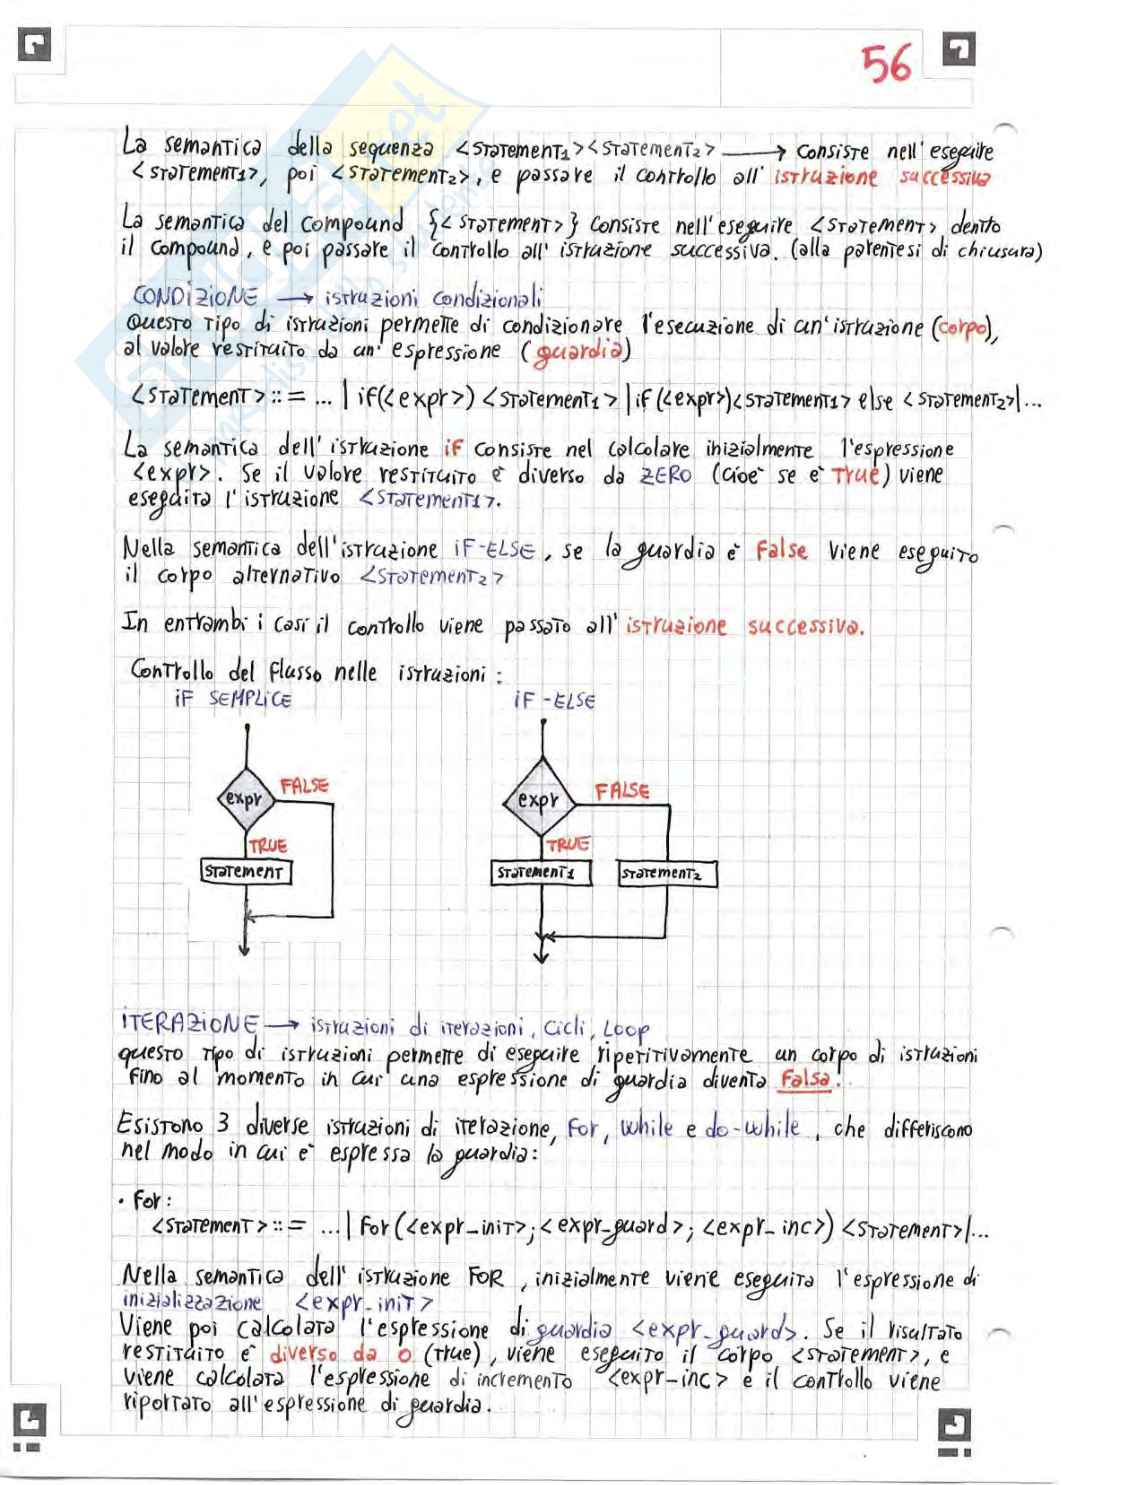 56
La semantica della sequenza <statement1><statement2> → consiste nell'eseguire
<statement1>, poi <statement2>, e passare il controllo all'istruzione successiva
La semantica del compound {<statement>} consiste nell'eseguire <statement> dentro
il compound, e poi passare il controllo all'istruzione successiva. (alla parentesi di chiusura)
CONDIZIONE → istruzioni condizionali
Questo tipo di istruzioni permette di condizionare l'esecuzione di un'istruzione (corpo),
al valore restituito da un'espressione (guardia)
<statement>::= ... | if(<expr>) <statement1> | if (<expr>)<statement1> else <statement2>|...
La semantica dell'istruzione if consiste nel calcolare inizialmente l'espressione
<expr>. Se il valore restituito è diverso da ZERO (cioè se è True) viene
eseguita l'istruzione <statement1>.
Nella semantica dell'istruzione IF-ELSE, se la guardia è False viene eseguito
il corpo alternativo <statement2>
In entrambi i casi il controllo viene passato all'istruzione successiva.
Controllo del flusso nelle istruzioni:
IF SEMPLICE
IF-ELSE
expr
FALSE
TRUE
statement
expr
FALSE
TRUE
statement1
statement2
ITERAZIONE → istruzioni di iterazioni, Cicli, Loop
questo tipo di istruzioni permette di eseguire ripetitivamente un corpo di istruzioni
fino al momento in cui una espressione di guardia diventa Falsa.
Esistono 3 diverse istruzioni di iterazione, For, while e do-while, che differiscono
nel modo in cui è espressa la guardia:
• For:
<statement>::= ...| For(<expr_init>;<expr_guard>; <expr_inc>) <statement>|...
Nella semantica dell'istruzione FOR, inizialmente viene eseguita l'espressione di
inizializzazione <expr_init>
Viene poi calcolata l'espressione di guardia <expr_guard>. Se il risultato
restituito è diverso da 0 (true), viene eseguito il corpo <statement>, e
viene calcolata l'espressione di incremento <expr_inc> e il controllo viene
riportato all'espressione di guardia.